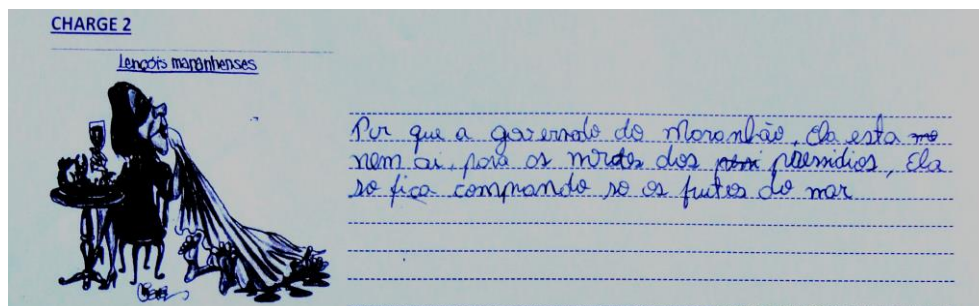 CHARGE 2
Lençois maranhenses
Por que a governado do Maranhão, Ela esta
nem ai, para os mrdos dos presidios, Ela
so fica comprando so os frutos do mar